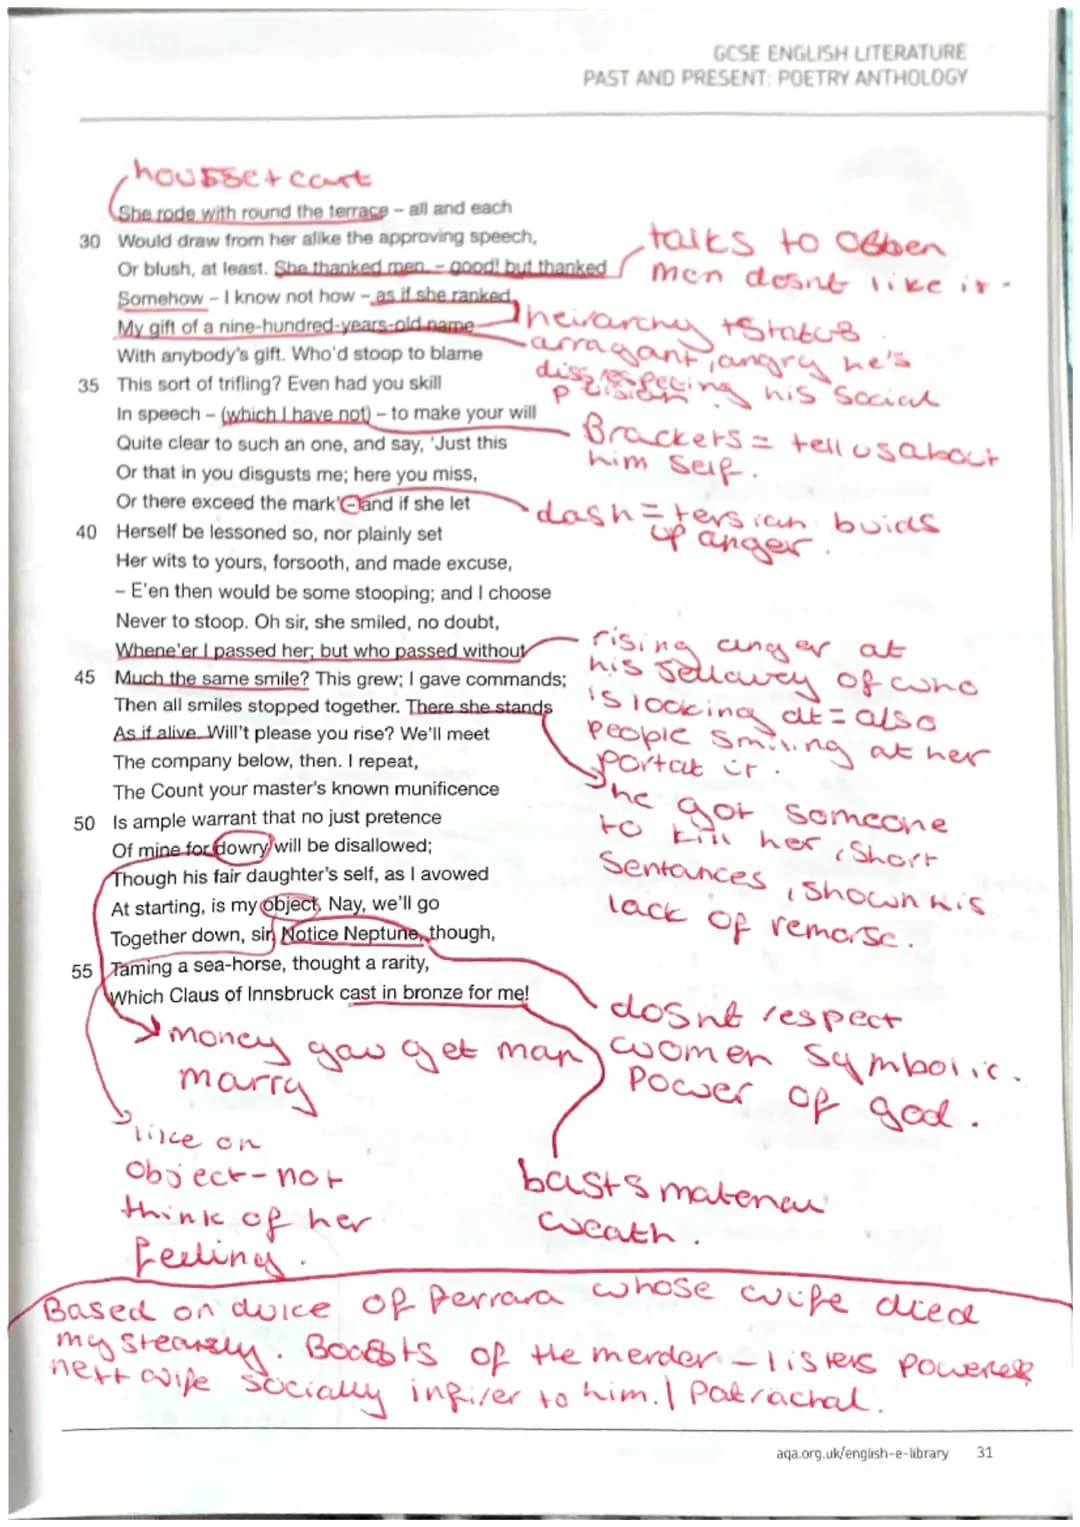 GCSE ENGLISH LITERATURE
PAST AND PRESENT: POETRY ANTHOLOGY
cart
She rode with round the terrace – all and each
30 Would draw from her alike the approving speech,
Or blush, at least. She thanked men, – good! but thanked
Somehow – I know not how – as if she ranked
My gift of a nine-hundred-years-old name
With anybody's gift. Who'd stoop to blame
35 This sort of trifling? Even had you skill
In speech – (which I have not) – to make your will
Quite clear to such an one, and say, 'Just this
Or that in you disgusts me; here you miss,
Or there exceed the mark' – and if she let
40 Herself be lessoned so, nor plainly set
Her wits to yours, forsooth, and made excuse,
– E'en then would be some stooping; and I choose
Never to stoop. Oh sir, she smiled, no doubt,
Whene'er I passed her; but who passed without
45 Much the same smile? This grew; I gave commands;
Then all smiles stopped together. There she stands
As if alive. Will't please you rise? We'll meet
The company below, then. I repeat,
The Count your master's known munificence
50 Is ample warrant that no just pretence
Of mine for dowry will be disallowed;
Though his fair daughter's self, as I avowed
At starting, is my object. Nay, we'll go
Together down, sir. Notice Neptune, though,
55 Taming a sea-horse, thought a rarity,
Which Claus of Innsbruck cast in bronze for me!
talks to
men dosnt like it.
heirarchy + status
arragant, angry he's
disrespecting his social
Brackets = tell us about
him self.
dash = buids
up anger.
rising anger at
his of who
is looking at = also
people smiling at her
portat it.
he got someone
to kill her, short
sentances, shown his
lack of remorse.
dosnt respect
women symbolic.
power of god.
money get man
marry
like on
object - not
think of her
feeling.
basts material
weath.
Based on duice of Ferrara whose wife died
mystearsly. Boasts of the merder -
nett wife socially to him. / Patrachal.
aqa.org.uk/english-e-library 31